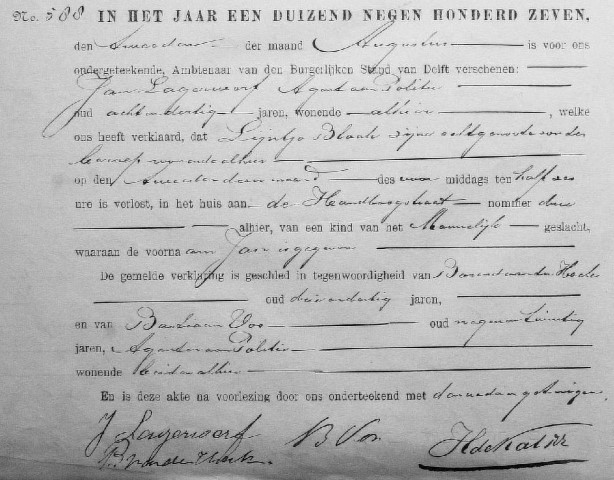 No. 588 IN HET JAAR EEN DUIZEND NEGEN HONDERD ZEVEN,
den tweeden der maand Augustus is voor ons
ondergeteekende, Ambtenaar van den Burgerlijken Stand van Delft verschenen:
Jan Lagerwerf Agent van Politie
oud acht en dertig jaren, wonende alhier, welke
ons heeft verklaard, dat Lijntje Blaak zijne echtgenoote zonder
beroep wonende alhier
op den tweeden dezer maand des middags ten half zes
ure is verlost, in het huis aan de Handboogstraat nommer drie
alhier, van een kind van het Mannelijk geslacht,
waaraan de voornaam Jan is gegeven
De gemelde verklaring is geschied in tegenwoordigheid van Barend van der
oud drie en dertig jaren,
en van Bastiaan Vos oud negen en twintig
jaren, Agenten van Politie
wonende beiden alhier
En is deze akte na voorlezing door ons onderteekend met de verdere getuigen.
J Lagerwerf B Vos
B van der